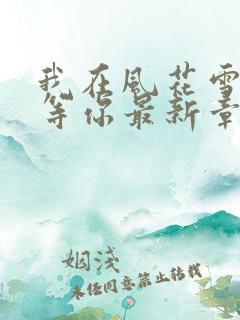 我在风花雪
等你最新章
姻浅
未经同意禁止转载